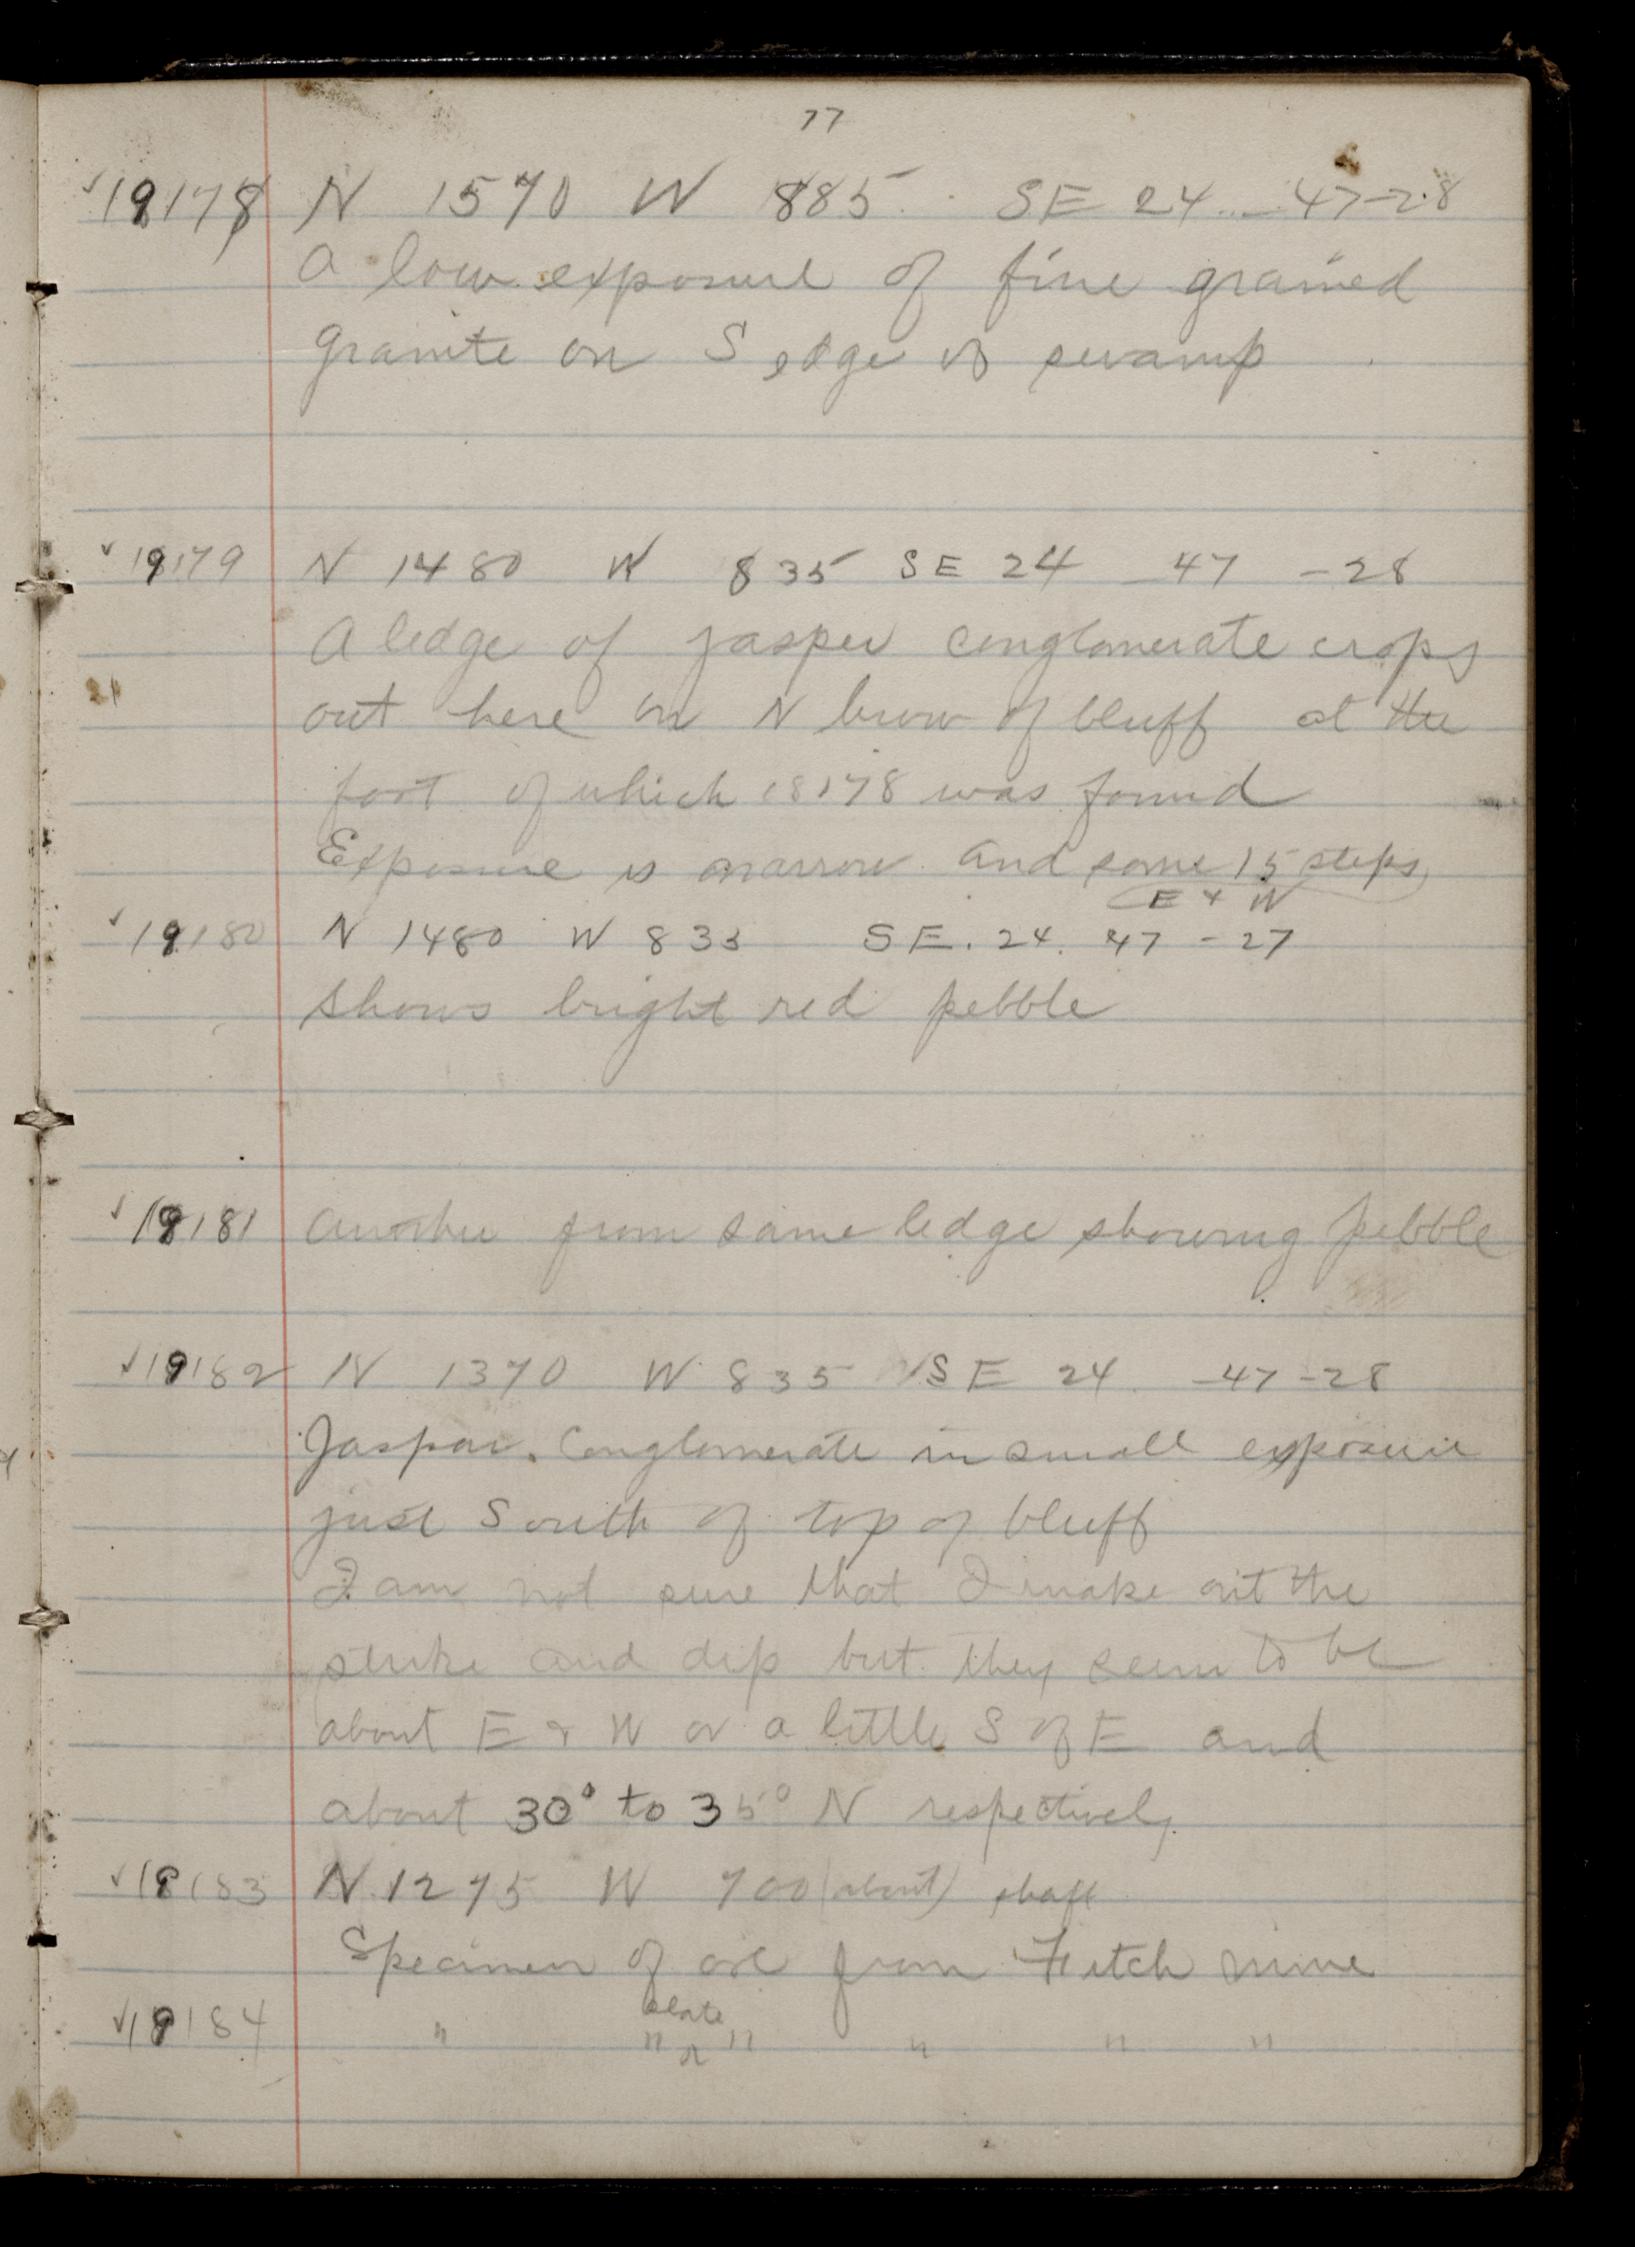 77
✓19178 N 1570 W 885 SE 24 - 47-28
A low exposure of fine grained
granite on S edge of swamp
✓19179 N 1480 W 835 SE 24 - 47 - 28
A ledge of jasper conglomerate crops
out here on N brow of bluff at the
foot of which 18178 was found
Exposure is narrow and some 15 steps
E + W
✓19180 N 1480 W 835 SE. 24. 47 - 27
shows bright red pebble
✓19181 Another from same ledge showing pebble
✓19182 N 1370 W 835 SE 24 - 47 - 28
Jaspar. Conglomerate in small exposure
just South of top of bluff
I am not sure that I make out the
strike and dip but they seem to be
about E + W or a little S of E and
about 30° to 35° N respectively
✓19183 N 1275 W 700 (about) shaft
Specimen of ore from Fitch mine
slate
✓19184 " " " " " "